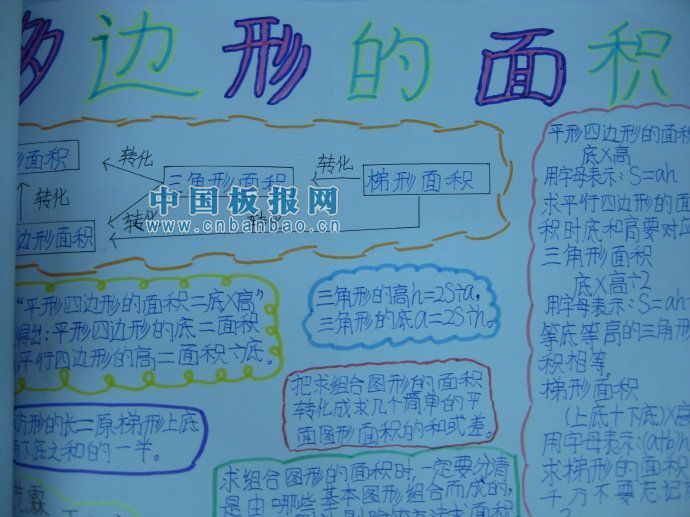 多边形的面积
形面积
转化
三角形面积
转化
梯形面积
转化
转化
边形面积
中国板报网
www.cnbanbao.cn
"平形四边形的面积=底X高"
得出:平形四边形的底=面积
平行四边形的高=面积÷底。
方形的长=原梯形上底
下底之和的一半。
三角形的高h=2S÷a,
三角形的底a=2S÷h。
把求组合图形的面积
转化成求几个简单的平
面图形面积的和或差。
求组合图形的面积时,一定要分清
是由哪些基本图形组合而成的,
平形四边形的面积
底X高
用字母表示:S=ah
求平行四边形的面
积时底和高要对应
三角形面积
底X高÷2
用字母表示:S=ah
等底等高的三角形
积相等。
梯形面积
(上底+下底)X高
用字母表示:(a+b)h
求梯形的面积
千万不要忘记